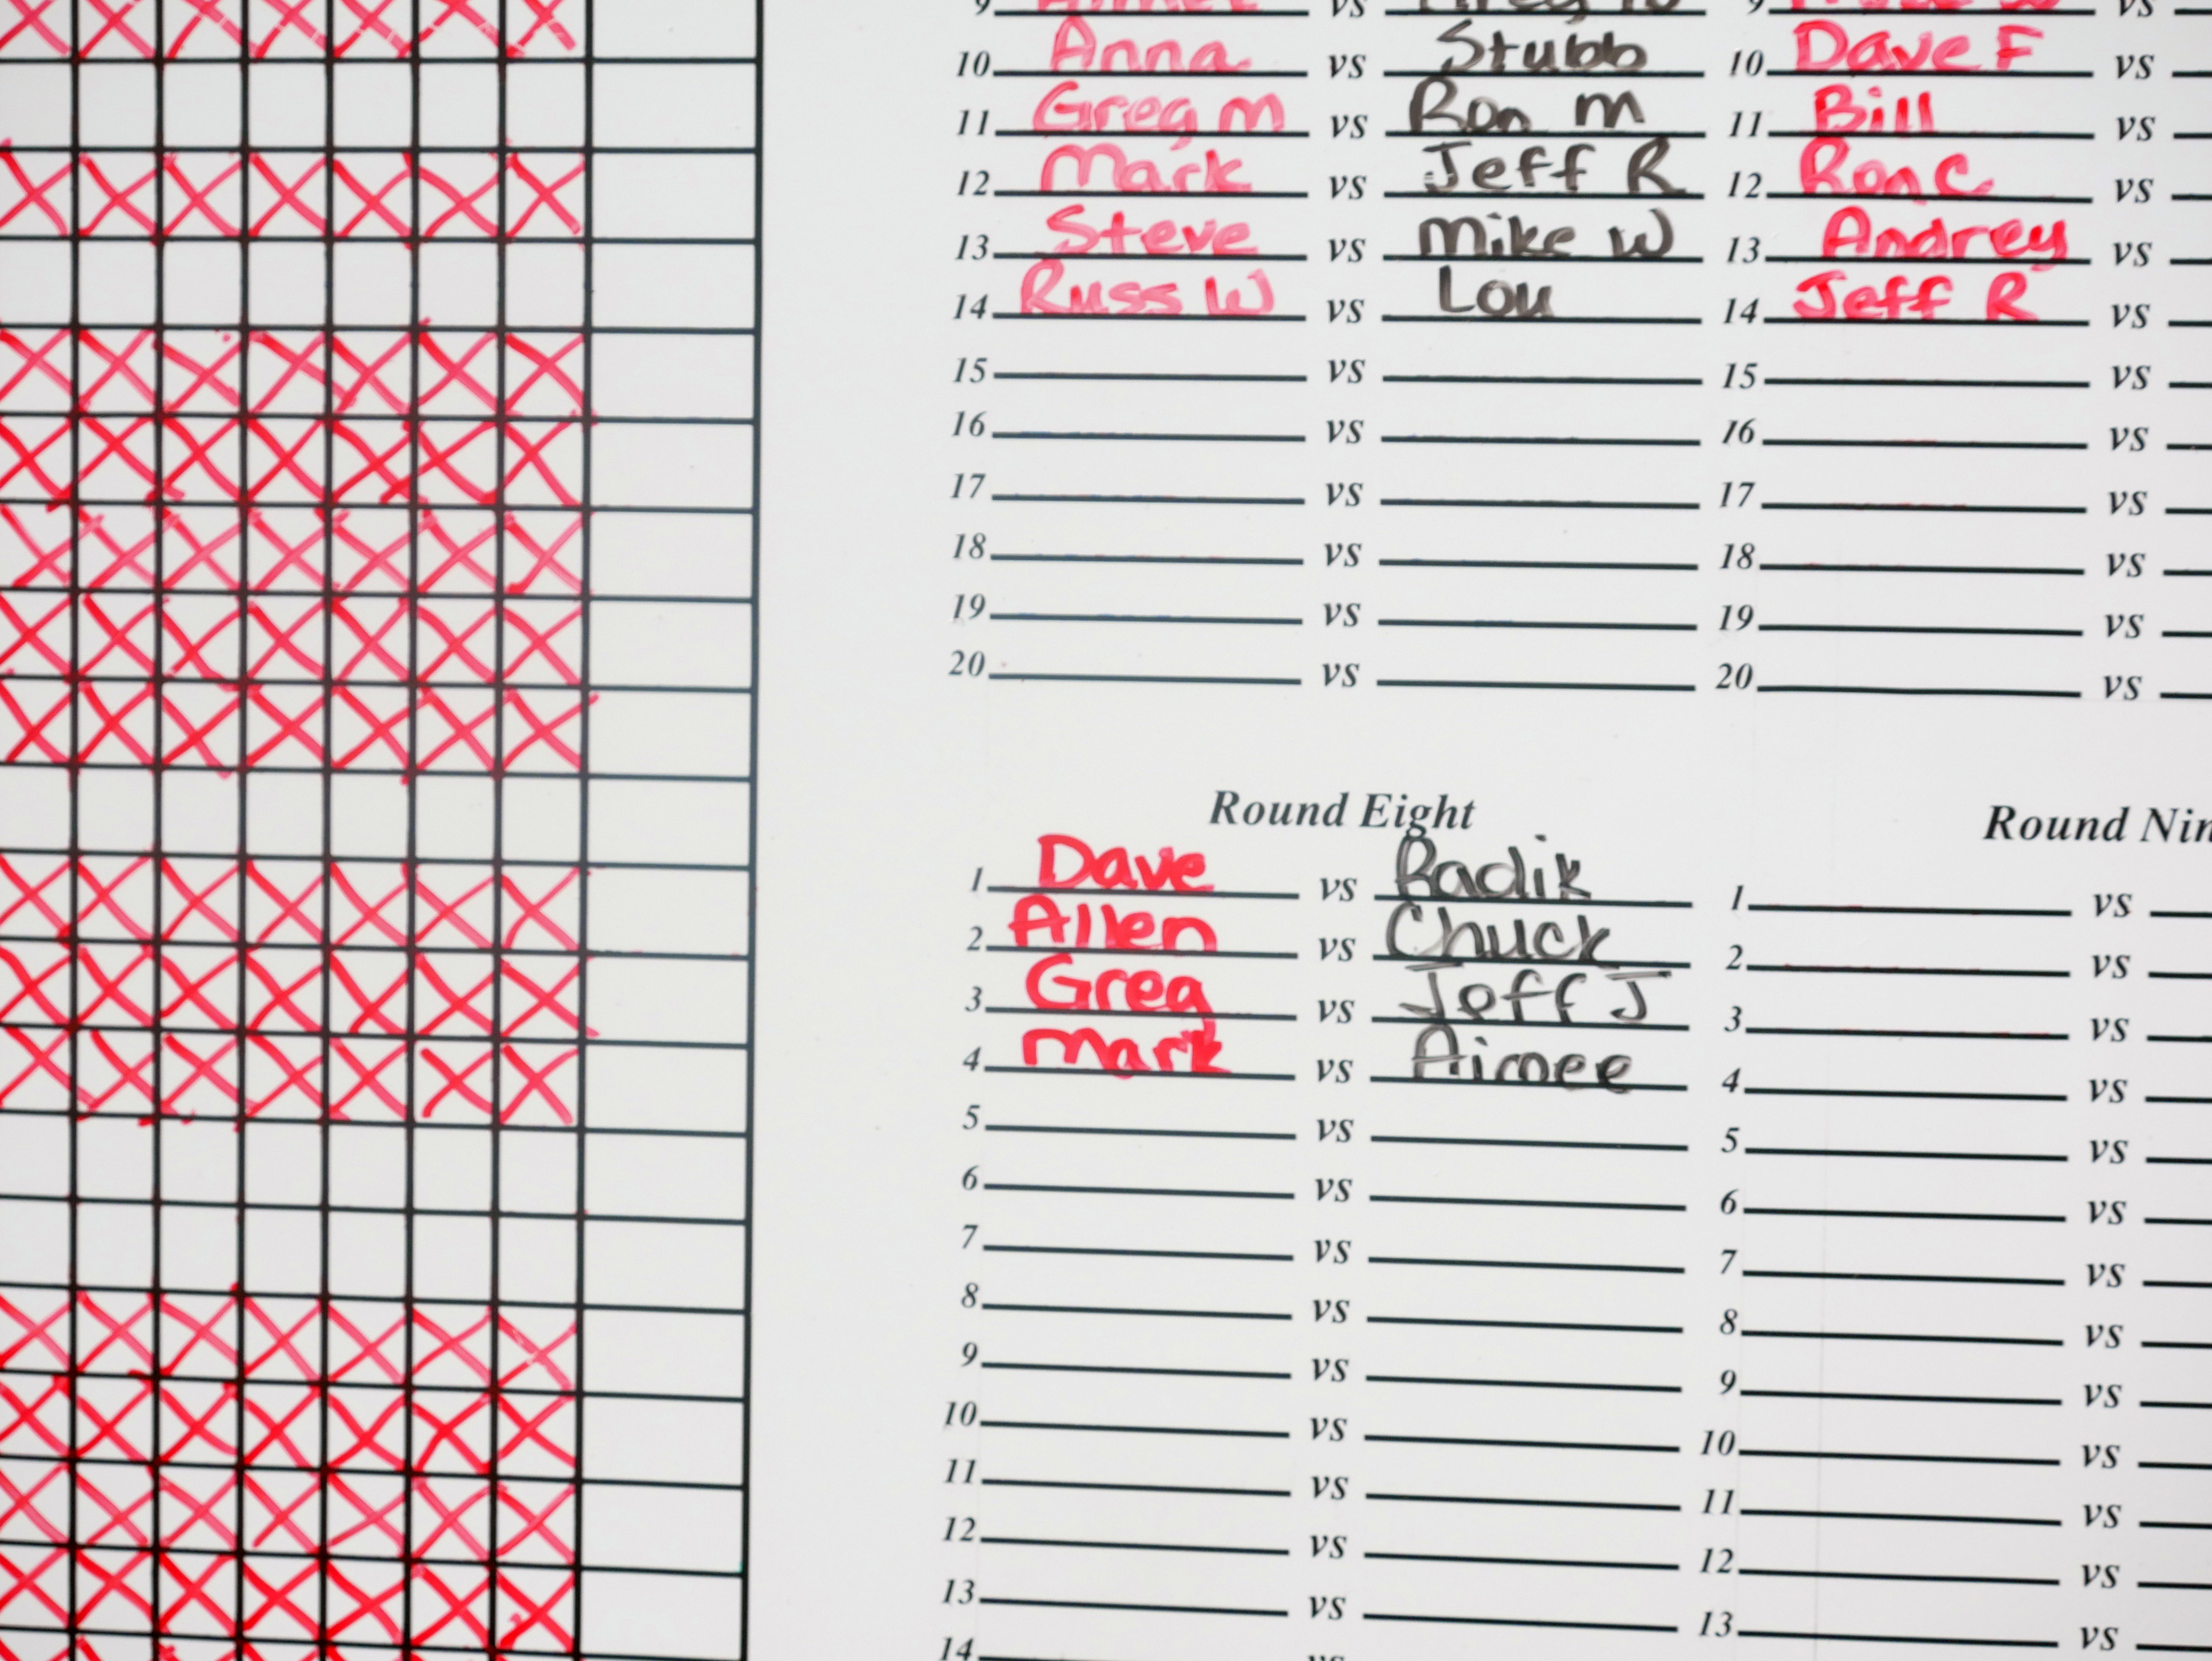 9 Aimee vs Greg W 9 vs
10 Anna vs Stubb 10 Dave F vs
11 Greg M vs Ron M 11 Bill vs
12 Mark vs Jeff R 12 Ron C vs
13 Steve vs Mike W 13 Andrey vs
14 Russ W vs Lou 14 Jeff R vs
15 vs 15 vs
16 vs 16 vs
17 vs 17 vs
18 vs 18 vs
19 vs 19 vs
20 vs 20 vs
Round Eight Round Nin
1 Dave vs Radik 1 vs
2 Allen vs Chuck 2 vs
3 Greg vs Jeff J 3 vs
4 Mark vs Aimee 4 vs
5 vs 5 vs
6 vs 6 vs
7 vs 7 vs
8 vs 8 vs
9 vs 9 vs
10 vs 10 vs
11 vs 11 vs
12 vs 12 vs
13 vs 13 vs
14 vs